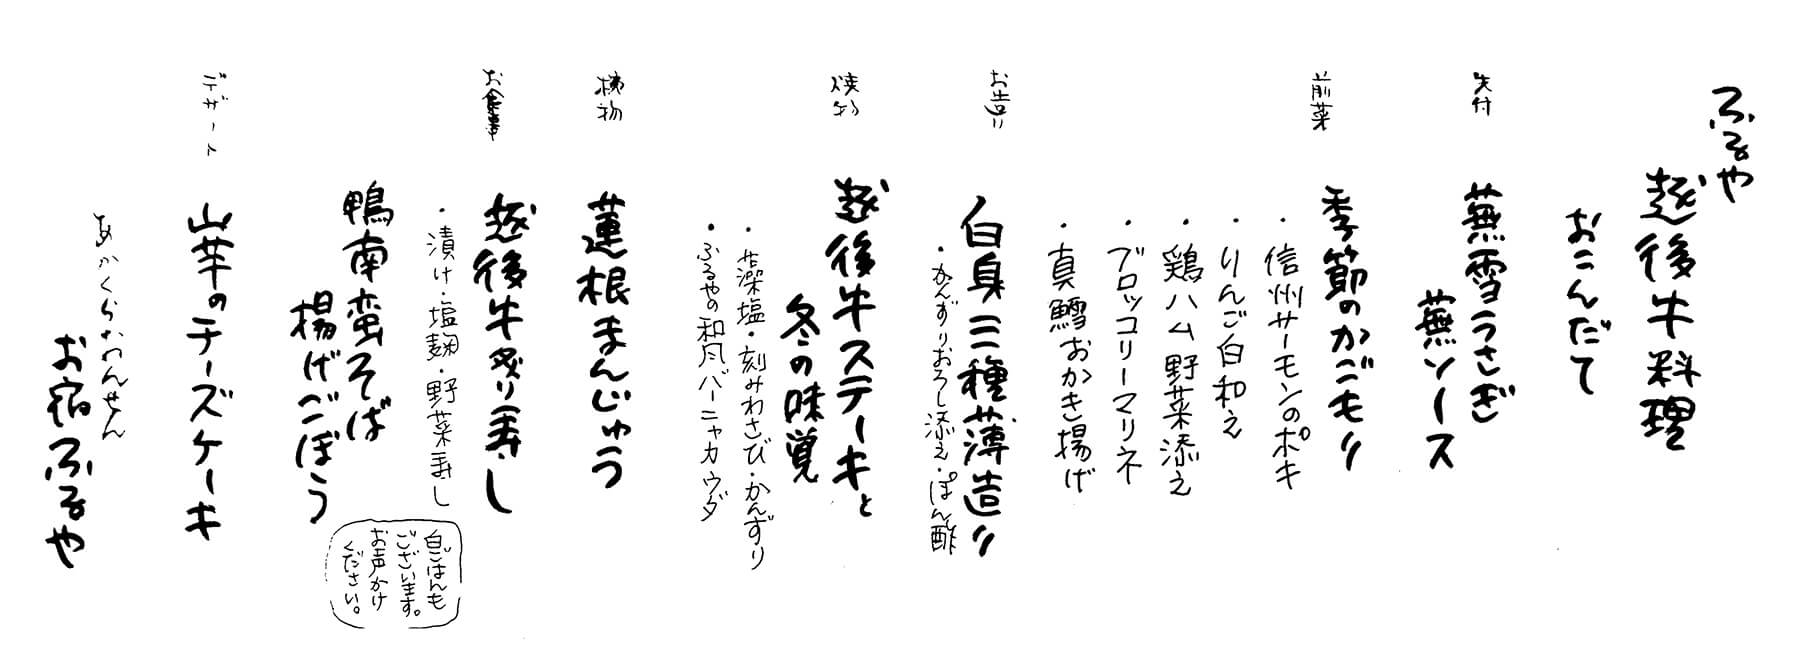 ふるや
越後牛料理
おこんだて
先付
蕪雪うさぎ
蕪ソース
前菜
季節のかごもり
・信州サーモンのポキ
・りんご白和え
・鶏ハム野菜添え
・ブロッコリーマリネ
・真鱈おかき揚げ
お造り
白身三種薄造り
・かんずりおろし添え・ぽん酢
焼物
越後牛ステーキと
冬の味覚
・藻塩・刻みわさび・かんずり
・ふるやの和風バーニャカウダ
椀物
蓮根まんじゅう
お食事
越後牛炙り寿し
・漬け・塩麹・野菜寿し
鴨南蛮そば
揚げごぼう
白ごはんも
ございます。
お声かけ
ください。
デザート
山芋のチーズケーキ
あかくらおんせん
お宿ふるや